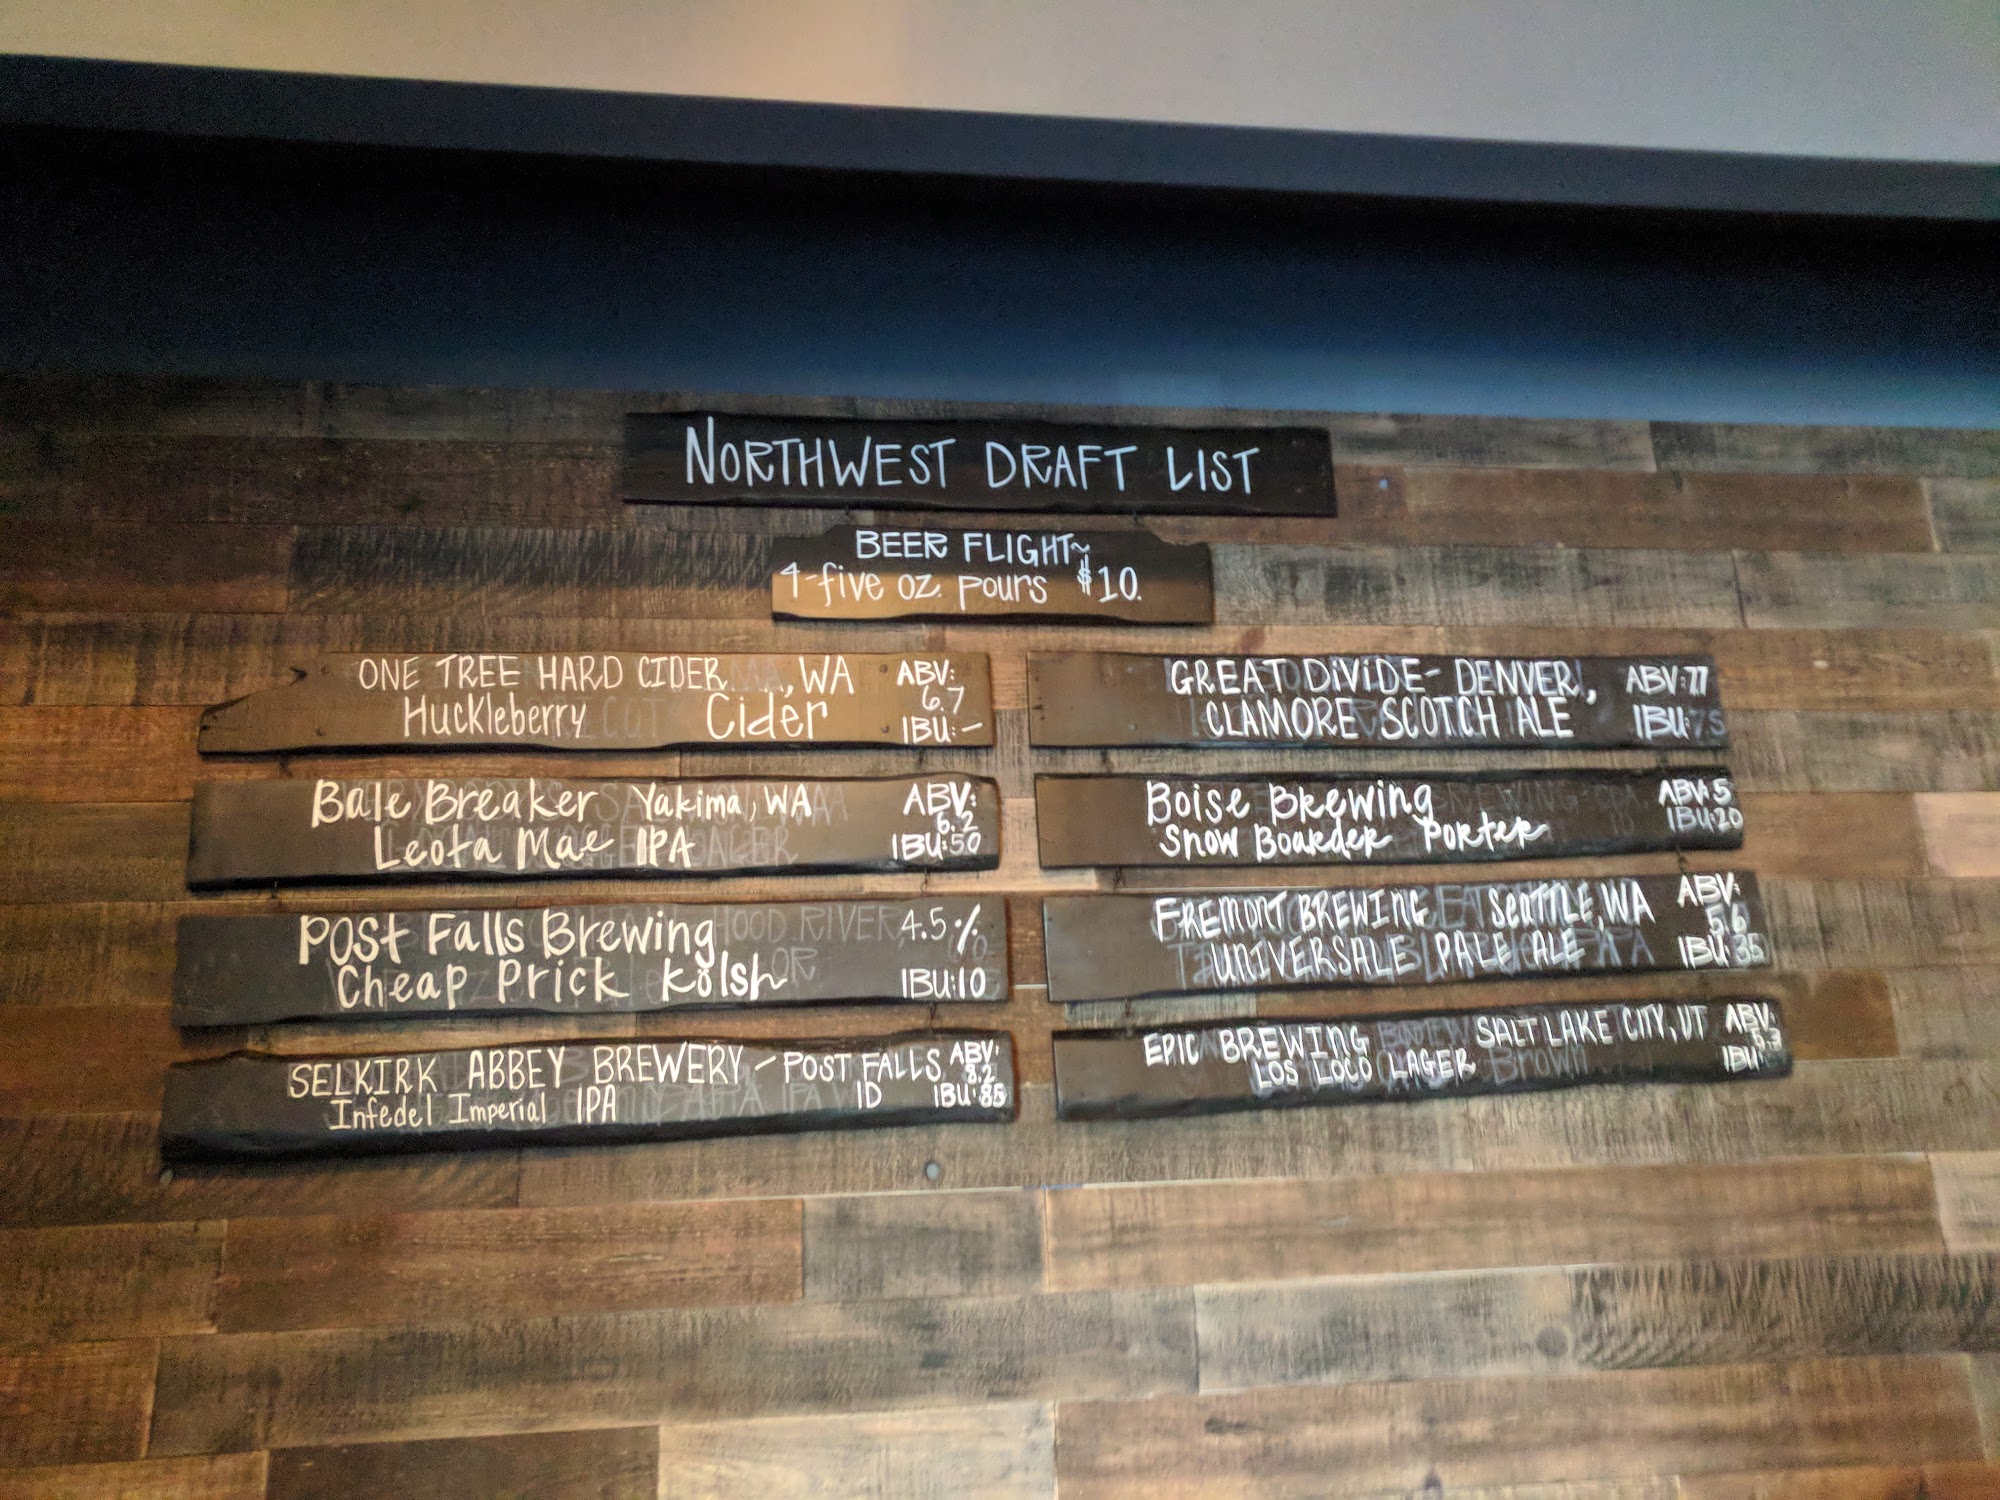 NORTHWEST DRAFT LIST
BEER FLIGHT~
4-five oz. pours $10.
ONE TREE HARD CIDER, WA ABV:
6.7
Huckleberry Cider IBU: -
Bale Breaker Yakima, WA ABV:
6.2
Leota Mae IPA IBU:50
Post Falls Brewing 4.5%
Cheap Prick Kölsh IBU:10
SELKIRK ABBEY BREWERY - POST FALLS ABV:
8.2
Infedel Imperial IPA ID IBU:85
GREAT DIVIDE - DENVER, ABV:7.7
CLAMORE SCOTCH ALE IBU:
Boise Brewing ABV:5
Snow Boarder Porter IBU:20
FREMONT BREWING SEATTLE, WA ABV:
5.6
UNIVERSALE PALE ALE IBU:35
EPIC BREWING SALT LAKE CITY, UT ABV:
5.3
LOS LOCO LAGER IBU: